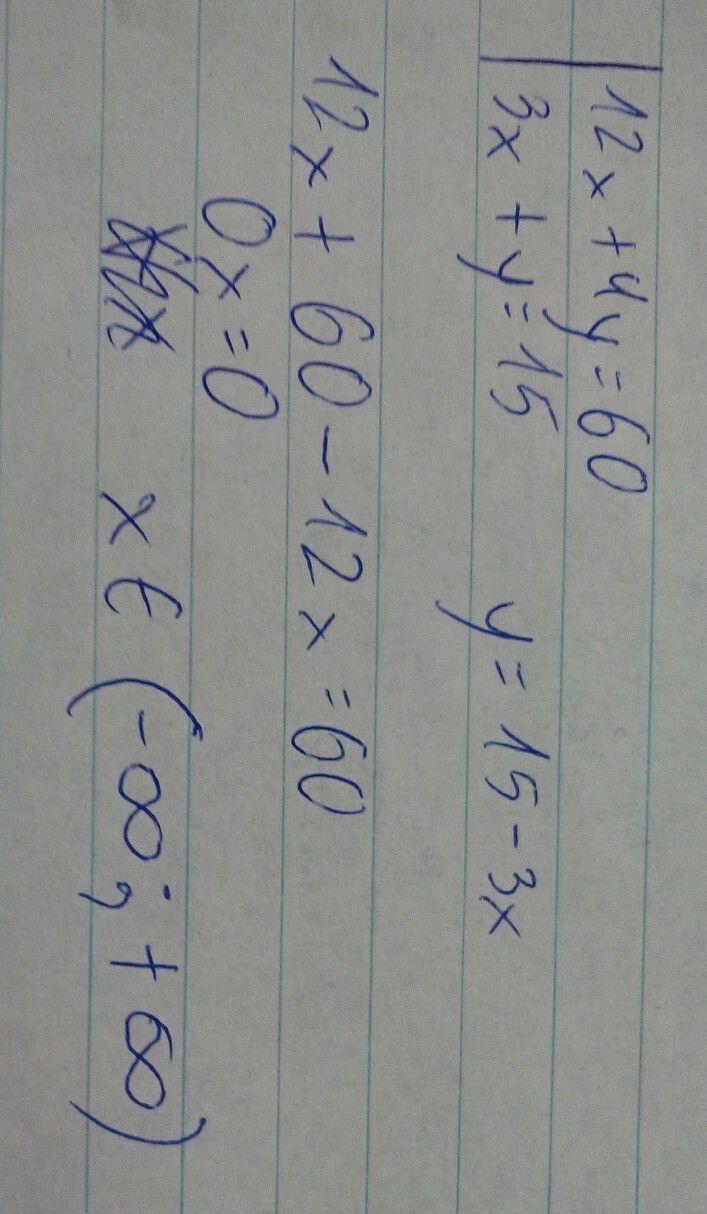 12x + 4y = 60
3x + y = 15 y = 15 - 3x
12x + 60 - 12x = 60
0x = 0
x ∈ (-∞; +∞)